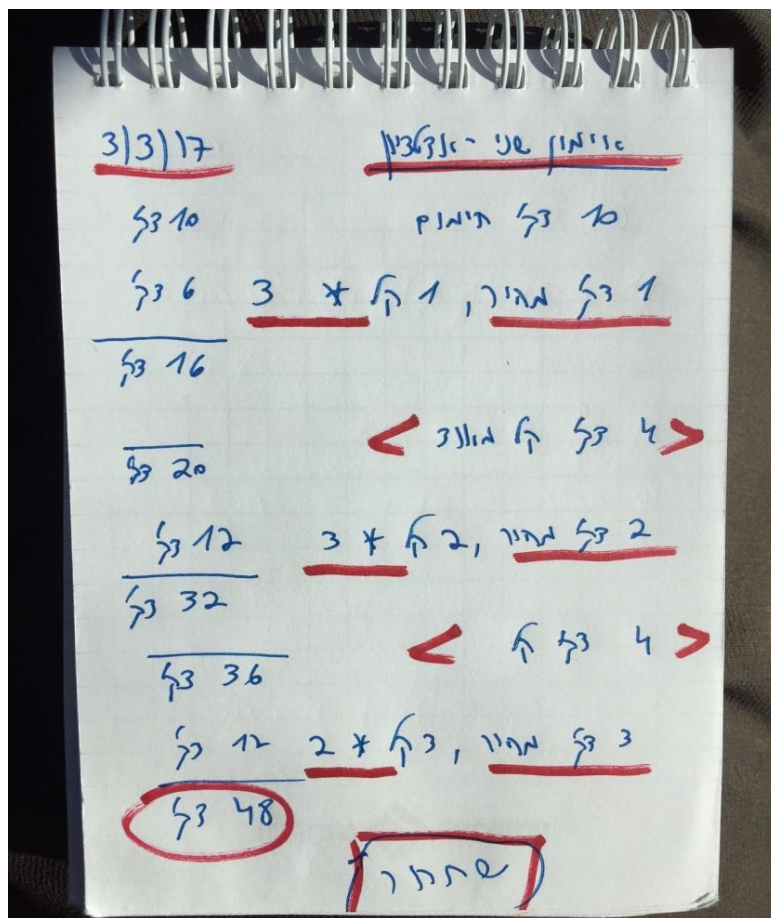 אימון שני - אנדטציון 3/3/17
10 דק' חימום 10 דק'
1 דק' מהיר, 1 קל * 3 6 דק'
16 דק'
4 דק' קל מאוד
20 דק'
2 דק' מהיר, 2 קל * 3 12 דק'
32 דק'
4 דק' קל
36 דק'
3 דק' מהיר, 3 קל * 2 12 דק'
48 דק'
שחרור